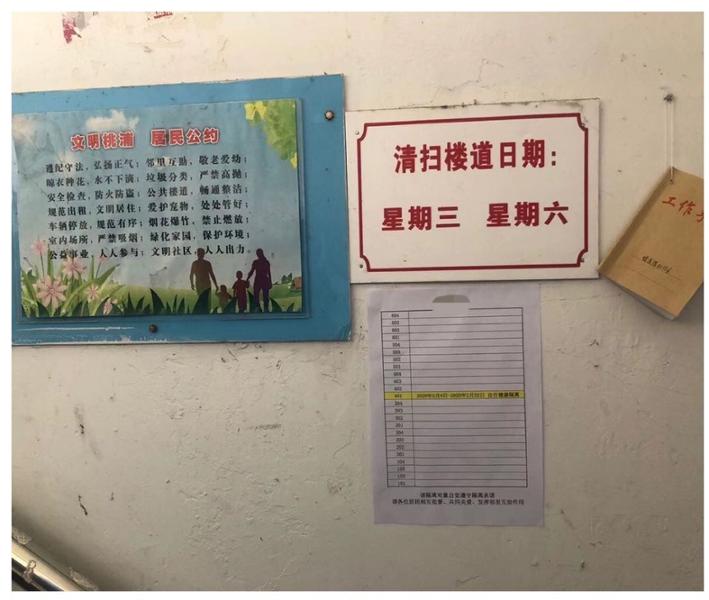 文明桃浦 居民公约
遵纪守法,弘扬正气;邻里互助,敬老爱幼;
晾衣种花,水不下滴;垃圾分类,严禁高抛;
安全检查,防火防盗;公共楼道,畅通整洁;
规范出租,文明居住;爱护宠物,处处管好;
车辆停放,规范有序;烟花爆竹,禁止燃放;
室内场所,严禁吸烟;绿化家园,保护环境;
公益事业,人人参与;文明社区,人人出力。
清扫楼道日期:
星期三 星期六
工作
604
603
602
601
504
503
502
501
404
403
402
401 自行健康隔离
304
303
302
301
204
203
202
201
104
103
102
101
请隔离对象自觉遵守隔离承诺